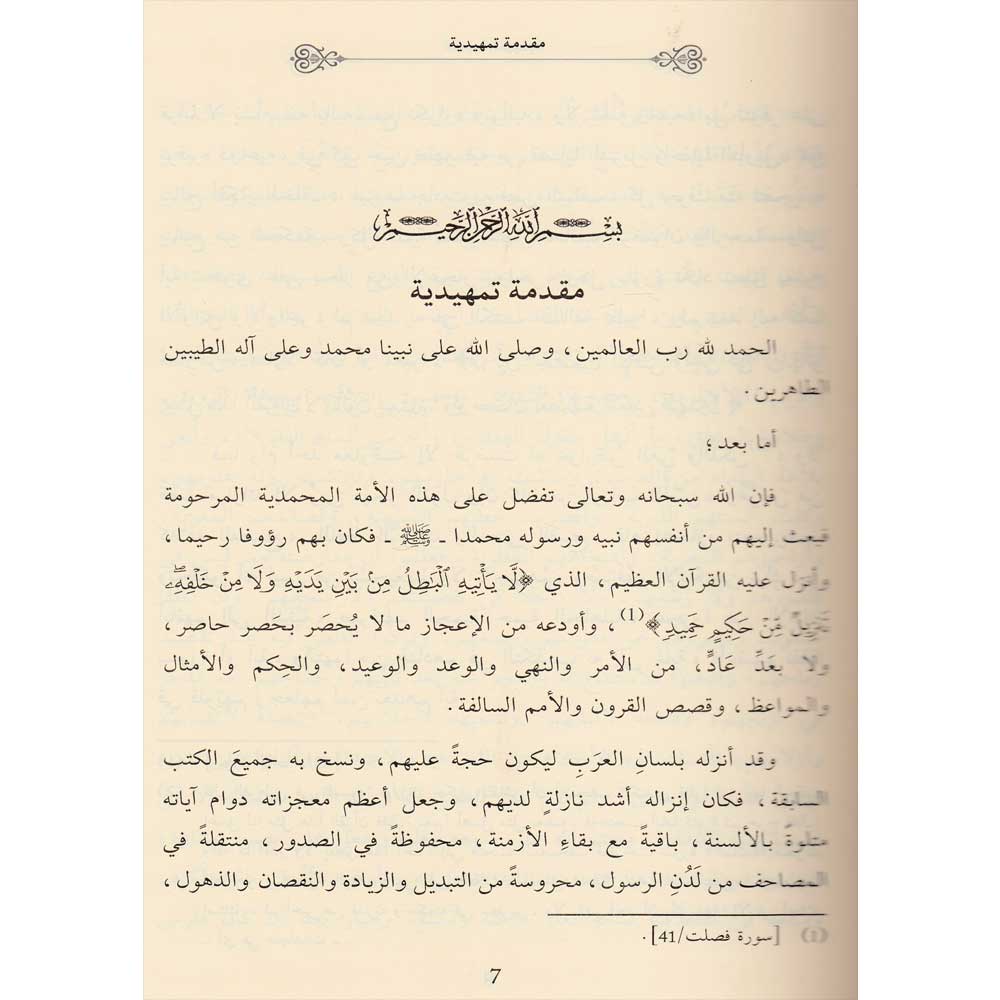 مقدمة تمهيدية
بسم الله الرحمن الرحيم
مقدمة تمهيدية
الحمد لله رب العالمين، وصلى الله على نبينا محمد وعلى آله الطيبين
الطاهرين.
أما بعد؛
فإن الله سبحانه وتعالى تفضل على هذه الأمة المحمدية المرحومة
فبعث إليهم من أنفسهم نبيه ورسوله محمدا ـ ﷺ ـ فكان بهم رؤوفا رحيما،
وأنزل عليه القرآن العظيم، الذي ﴿لَّا يَأْتِيهِ الْبَاطِلُ مِنْ بَيْنِ يَدَيْهِ وَلَا مِنْ خَلْفِهِۦۖ
تَنزِيلٌ مِّنْ حَكِيمٍ حَمِيدٍ﴾(1)، وأودعه من الإعجاز ما لا يُحصَر بحَصر حاصر،
ولا بعَدِّ عَادٍّ، من الأمر والنهي والوعد والوعيد، والحِكم والأمثال
والمواعظ، وقصص القرون والأمم السالفة.
وقد أنزله بلسانِ العرَبِ ليكون حجةً عليهم، ونسخ به جميعَ الكتب
السابقة، فكان إنزاله أشد نازلةٍ لديهم، وجعل أعظم معجزاته دوام آياته
متلوةً بالألسنة، باقيةً مع بقاءِ الأزمنة، محفوظةً في الصدور، منتقلةً في
المصاحف من لَدُنِ الرسول، محروسةً من التبديل والزيادة والنقصان والذهول،
(1) [سورة فصلت/41].
7